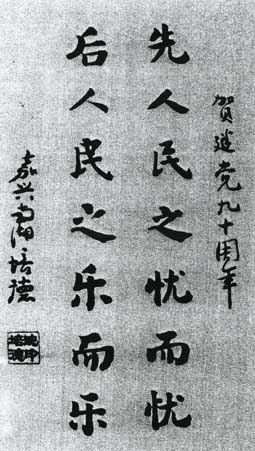 贺建党九十周年
先人民之忧而忧
后人民之乐而乐
嘉兴南湖培德